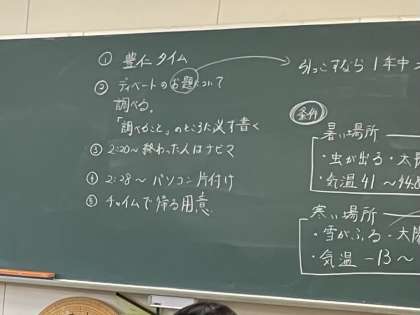 ① 豊仁タイム
② ディベートのお題について
調べる。
「調べること」のところに必ず書く
③ 2:20〜 終わった人はナビマ
④ 2:28〜 パソコン片付け
⑤ チャイムで帰る用意
引っこすなら 1年中
条件
暑い場所
・虫が出る・太陽
・気温 41〜44.8
寒い場所
・雪がふる・太陽
・気温 -13〜